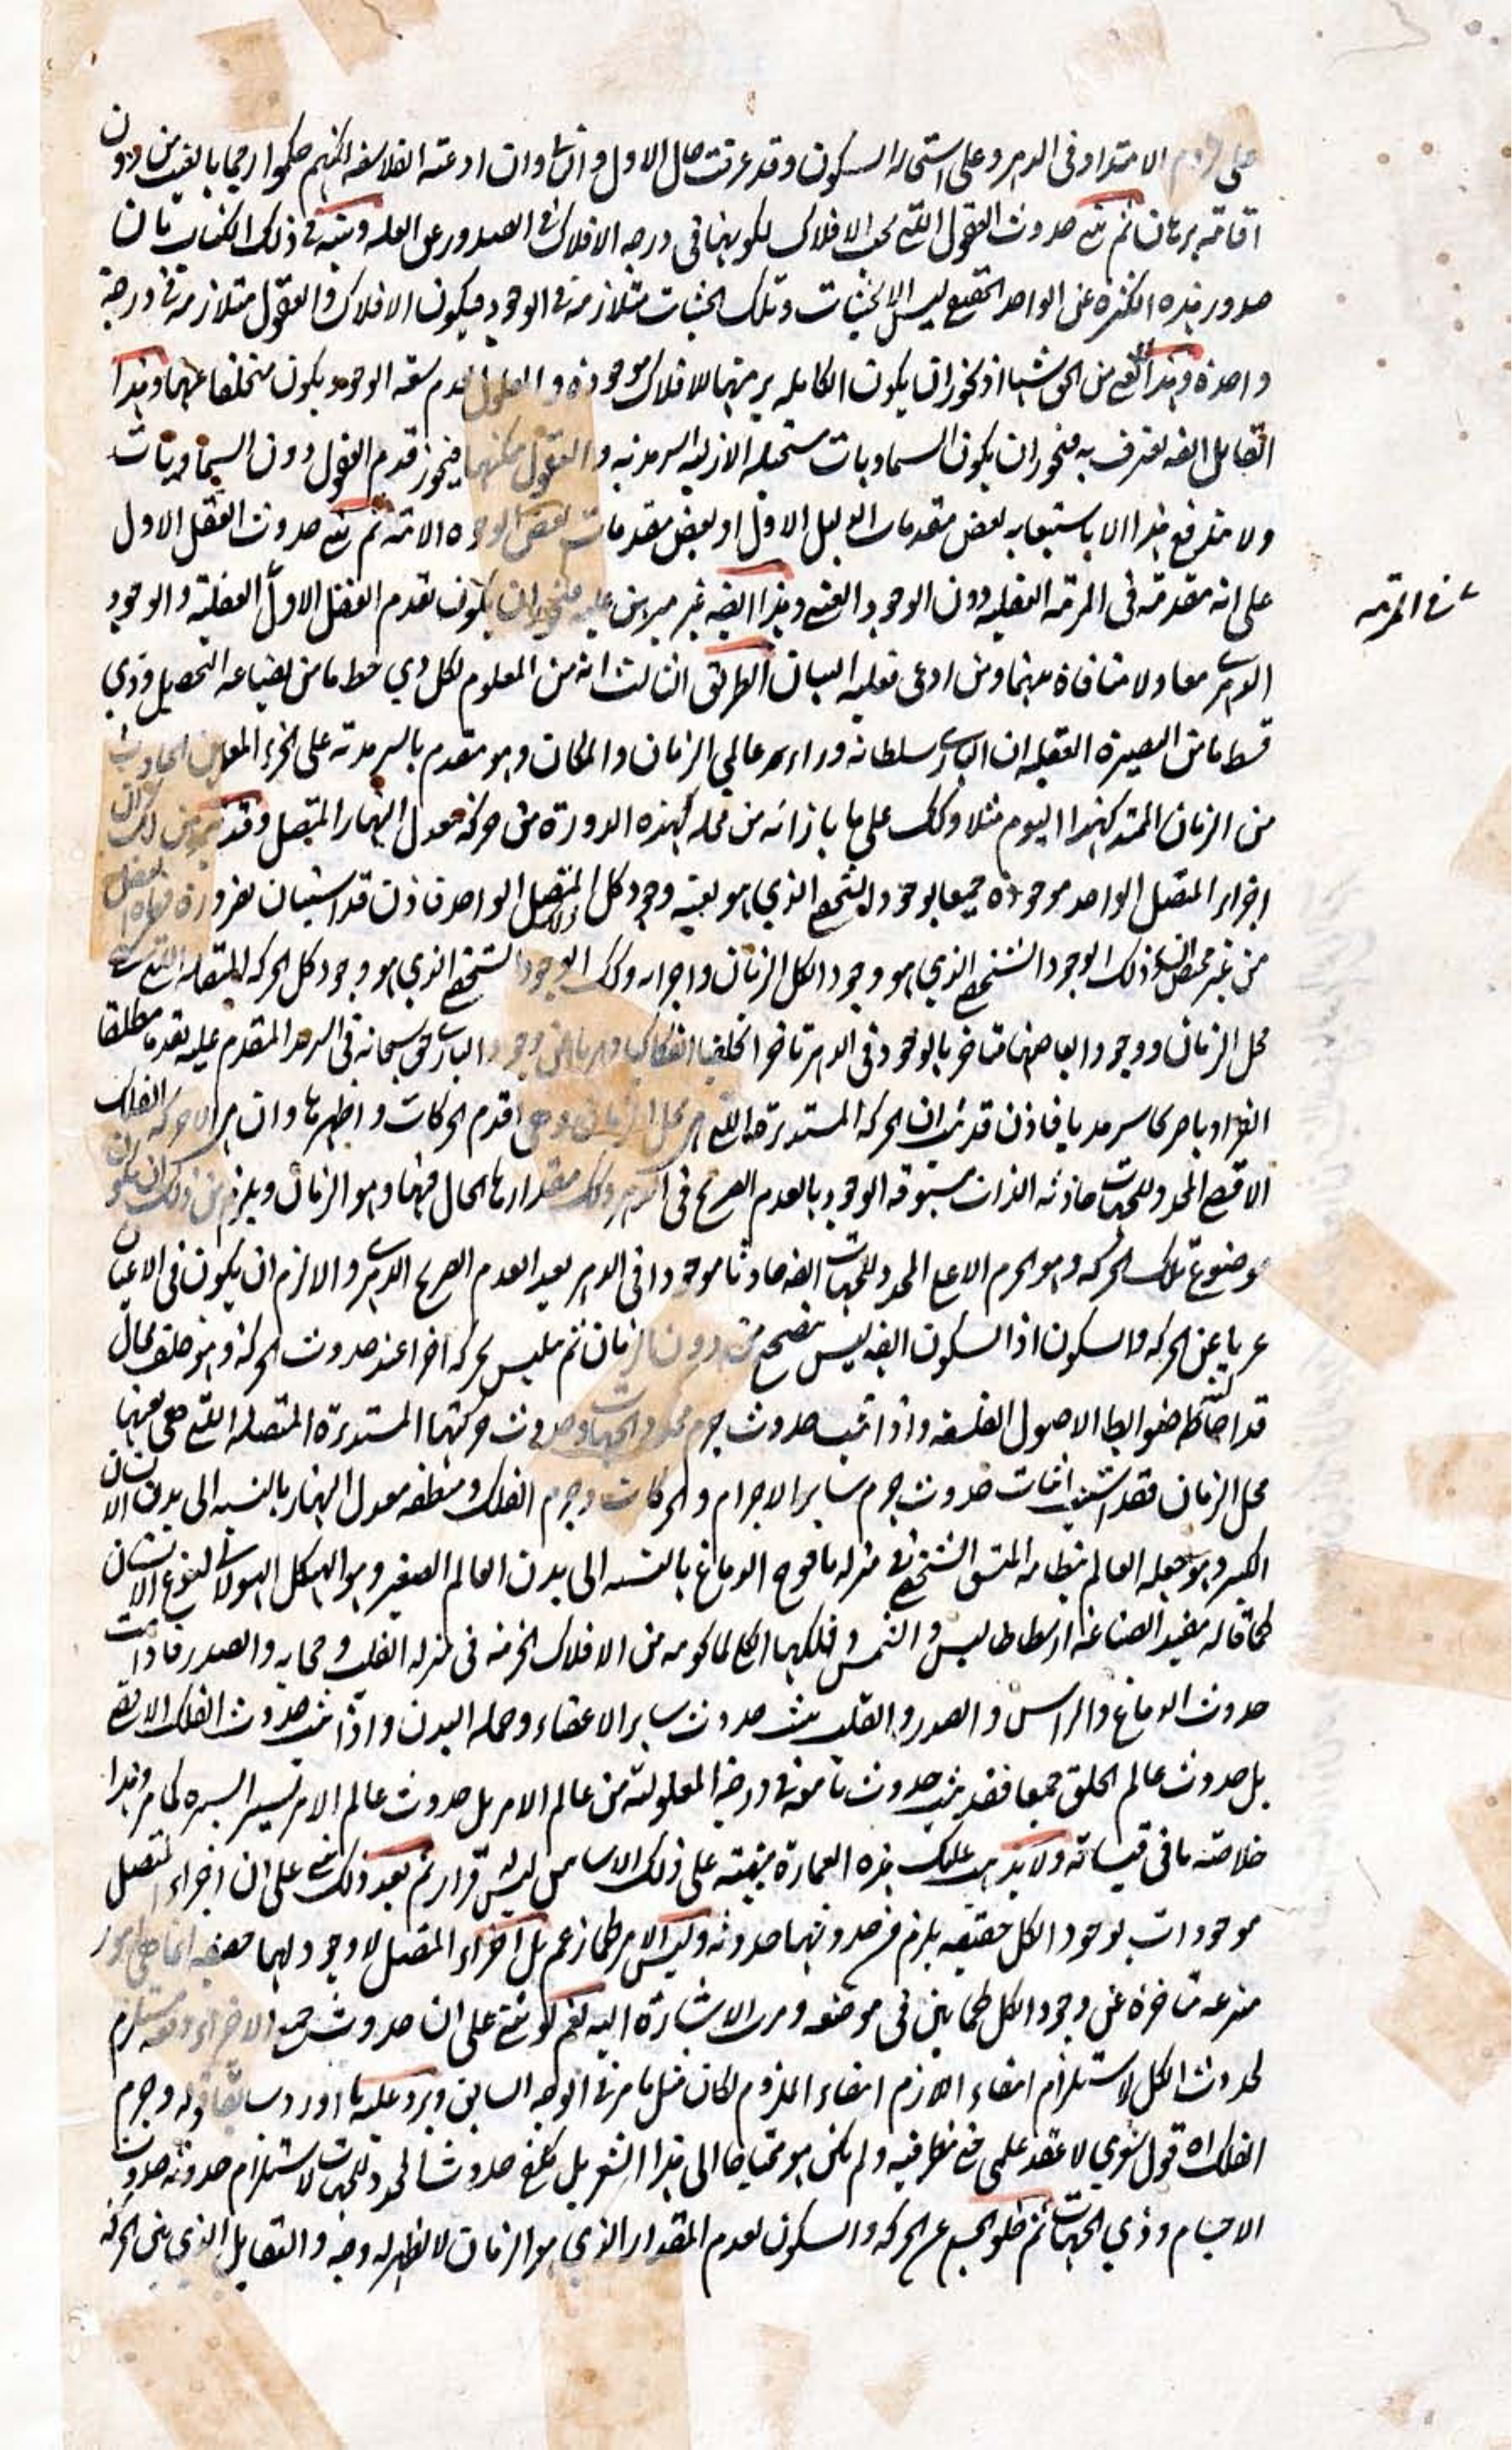 الامتداد فى الدهر وعلى استحاله السكون وقد عرفت حال الاول واما الثانى وان ادعته الفلاسفه لكنهم حكموا رجما بالغيب من دون
اقامة برهان ثم بنى حدوث العقول التى تحت الافلاك لكونها فى درجه الافلاك فى الصدور عن العله وبينه فى ذلك الكتاب بان
صدور هذه الكثره عن الواحد الحقيقى ليس الا بحيثيات وتلك الحيثيات متلازمه فى الوجود فيكون الافلاك والعقول متلازمه فى درجة
واحدة وهذا لا يغنى من الحق شيئا اذ يجوز ان يكون الكامله مرتبتها للافلاك موجودة والمعلول لعدم سعه الوجود يكون متخلفا عنها وهذا
القايل ايضه يعترف به فيجوز ان يكون السماويات مستحيله الازليه السرمديه والعقول ممكنها فيجوز قدم العقول دون السماويات
ولا يندفع هذا الا باستيعابه بعض مقدمات الدليل الاول او بعض مقدمات بعض الوجوه الاتيه ثم بنى حدوث العقل الاول
على انه مقدمه فى المرتبه العقليه دون الوجود العينى وهذا ايضه غير مبرهن عليه فيجوز ان يكون تقدم العقل الاول العقلية والوجود
الدهرى معا ولا منافاة بينهما ومن ادعى فعليه البيان الطريق الثالث انه من المعلوم لكل ذي حظ ما من بضاعه التحصيل وذي
قسط ما من البصيرة العقليه ان البارى سلطانه وراء عالمي الزمان والمكان وهو متقدم بالسرمديه على الجزء المعين الحادث
من الزمان الممتد كهذا اليوم مثلا وكذلك على ما بازائه من محله كهذه الدورة من حركة معدل النهار المتصل وقد تبرهن لك ان
اجزاء المتصل الواحد موجودة جميعا بوجود الشخصى الذي هو بعينه وجود كل المتصل الواحد فاذن قد استبان بضرورة
من غير محيص ان ذلك الوجود الشخصى الذي هو وجود الكل الزمان واجزاءه وكذلك الوجود الشخصى الذي هو وجود كل الحركه المتصله التى هى
محل الزمان ووجود ابعاضها متاخر بالوجود فى الدهر تاخرا تخلفيا انفكاكيا دهريا عن وجود البارى الحق سبحانه فى السرمد المتقدم عليه تقدما مطلقا
انفراديا صريحا سرمديا فاذن قد ثبت ان الحركه المستديرة التى هى محل الزمان وهى اقدم الحركات واظهرها وان هى الا حركه الفلك
الاقصى المحدد للجهات حادثه الذات مسبوقه الوجود بالعدم الصريح فى الدهر وكذلك مقدارها الحال فيها وهو الزمان ويلزم من ذلك ان يكون
موضوع تلك الحركه وهو الجرم الاعلى المحدد للجهات ايضه حادثا موجودا فى الدهر بعد العدم الصريح الدهرى والا لزم ان يكون فى الاعيان
عريا عن الحركه والسكون اذ السكون ايضه ليس يتصحح من دون الزمان ثم يلبس بحركه اخرا عند حدوث الحركة وهو خلف محال
قد احاطه ضوابط الاصول الفلسفه واذا ثبت حدوث جرم محدد الجهات وحدوث حركتها المستديرة المتصله التى هى بعينها
محل الزمان فقد استتب اثبات حدوث جرم ساير الاجرام والحركات وجرم الفلك ومنطقه معدل النهار بالنسبه الى بدن الانسان
الكبير وهو جمله العالم بنظامه المتسق الشخصى فى منزله يافوخ الدماغ بالنسبه الى بدن العالم الصغير وهو الهيكل الهيولانى لنوع الانسان
كما قاله مفيد الصناعه ارسطاطاليس والشمس وفلكها الكلى لما حويه من الافلاك الجزئيه فى منزله القلب وحجابه والصدر فاذا ثبت
حدوث الدماغ والراس والصدر والقلب ثبت حدوث ساير الاعضاء وجمله البدن واذا ثبت حدوث الفلك الاقصى
بل حدوث عالم الخلق جميعا فقد ثبت حدوث ما معه فى درجه المعلوليه من عالم الامر بل حدوث عالم الامر باسره كما مر وهذا
خلاصة ما فى قبساته ولا يذهب عليك هذه العمارة مبنيته على ذلك الاساس ليس قرار ثم بعد ذلك بنى على ان اجزاء المتصل
موجودات بوجود الكل حقيقه يلزم من حدوثها حدوثه وليس الامر كما زعم بل اجزاء المتصل لا وجود لها حقيقه انما هى امور
منتزعه متاخرة عن وجود الكل كما بين فى موضعه ومرت الاشارة اليه نعم لو بنى على ان حدوث جميع الاجزاء دفعه مستلزم
لحدوث الكل لاستلزام انتفاء اللازم انتفاء الملزوم لكان مثل ما مر فى الوجه السابق ويرد عليه ما اورد سابقا قوله وجرم
الفلك اه قول شعري لا عقد علمى مع نظر فيه ولم يكن هو محتاجا الى هذا الشعر بل يكفى حدوث المحدد للجهات لاستلزام حدوثه حدوث
الاجسام وذي الجهات ثم خلو الجسم عن الحركه والسكون لعدم المقدار الذي هو الزمان لا يظهر له وجه والتقابل الذي بين الحركة